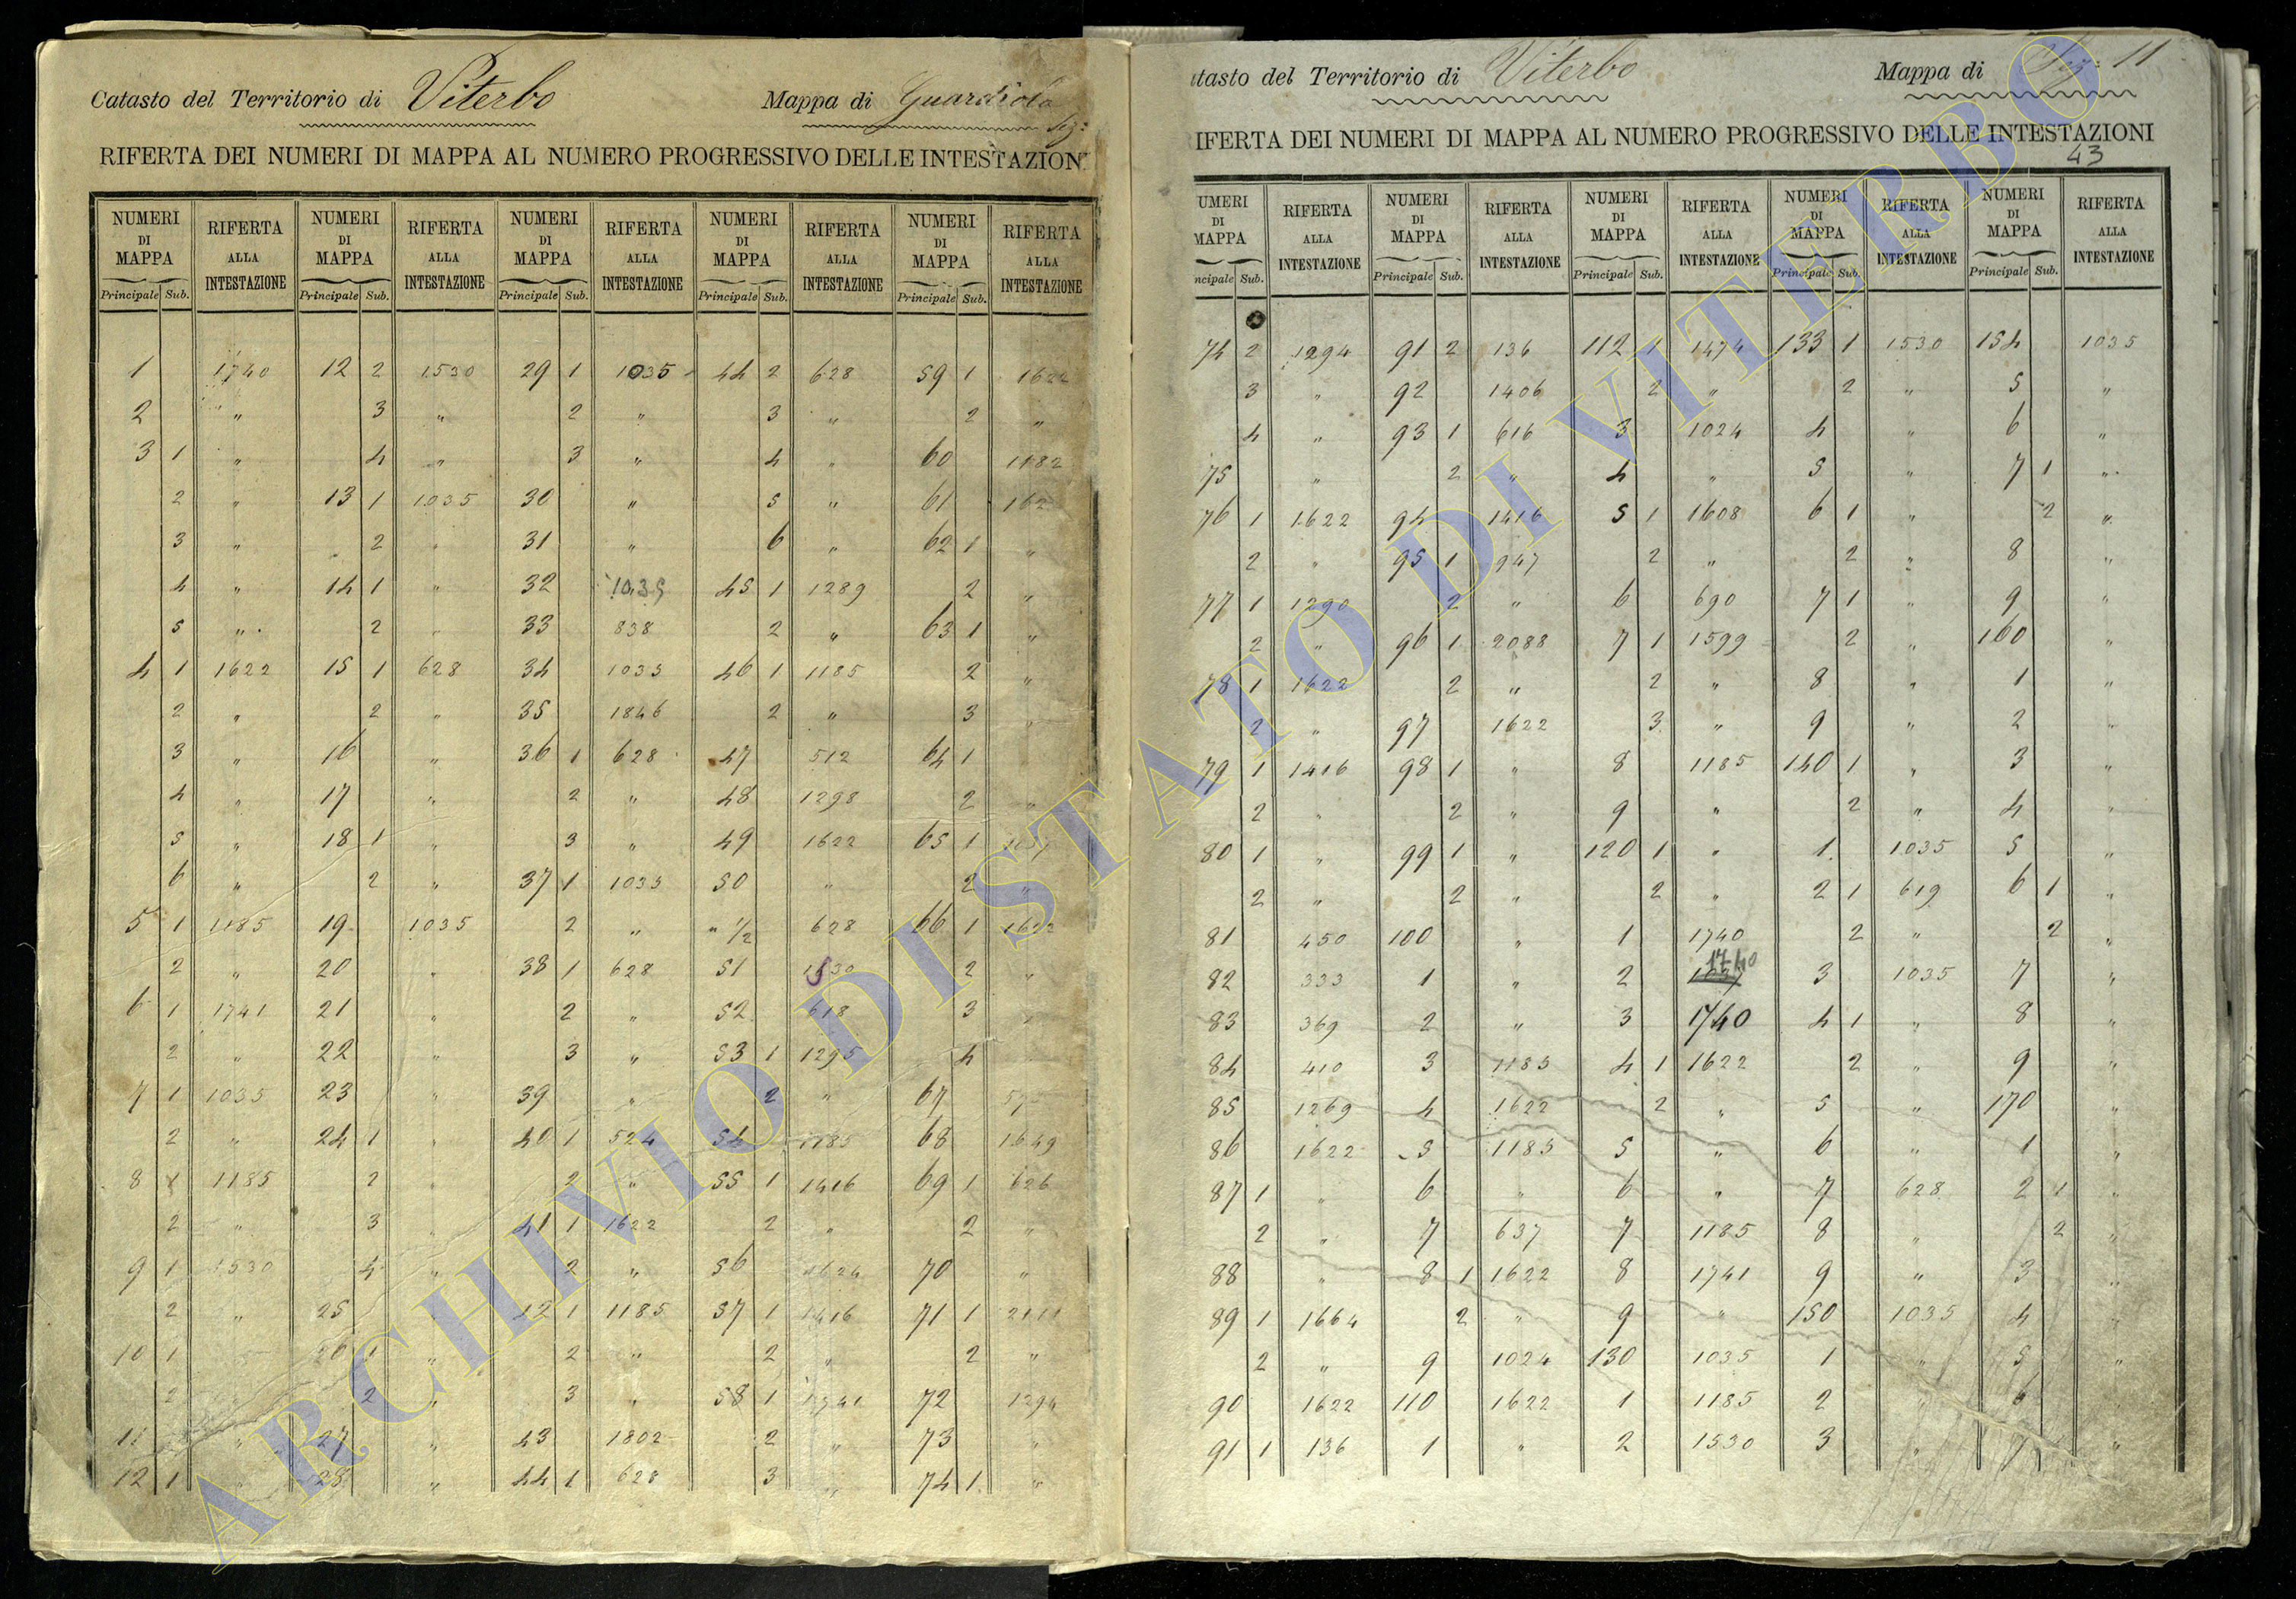 Catasto del Territorio di Viterbo Mappa di Guardiola
Sez:
RIFERTA DEI NUMERI DI MAPPA AL NUMERO PROGRESSIVO DELLE INTESTAZION
NUMERI DI MAPPA RIFERTA ALLA INTESTAZIONE NUMERI DI MAPPA RIFERTA ALLA INTESTAZIONE NUMERI DI MAPPA RIFERTA ALLA INTESTAZIONE NUMERI DI MAPPA RIFERTA ALLA INTESTAZIONE NUMERI DI MAPPA RIFERTA ALLA INTESTAZIONE
Principale Sub. Principale Sub. Principale Sub. Principale Sub. Principale Sub.
1 1740 12 2 1530 29 1 1035 44 2 628 59 1 1622
2 " 3 " 2 " 3 " 2 "
3 1 " 4 " 3 " 4 " 60 1182
2 " 13 1 1035 30 " 5 " 61 162
3 " 2 " 31 " 6 " 62 1 "
4 " 14 1 " 32 1035 45 1 1289 2 "
5 " 2 " 33 838 2 " 63 1 "
4 1 1622 15 1 628 34 1035 46 1 1185 2 "
2 " 2 " 35 1846 2 " 3 "
3 " 16 " 36 1 628 47 512 64 1
4 " 17 " 2 " 48 1298 2 "
5 " 18 1 " 3 " 49 1622 65 1
6 " 2 " 37 1 1035 50 " 2 "
5 1 1185 19 1035 2 " " 1/2 628 66 1 1622
2 " 20 " 38 1 628 51 1530 2 "
6 1 1741 21 " 2 " 52 618 3 "
2 " 22 " 3 " 53 1 1295 4 "
7 1 1035 23 " 39 " 2 " 67
2 " 24 1 " 40 1 524 54 1185 68 1649
8 1 1185 2 " 2 " 55 1 1416 69 1 626
2 " 3 " 41 1 1622 2 " 2 "
9 1 1530 4 " 2 " 56 1624 70 "
2 " 25 42 1 1185 57 1 1416 71 1 2111
10 1 26 1 " 2 " 2 " 2 "
2 2 " 3 " 58 1 1741 72 1294
11 " 27 " 43 1802 2 " 73 "
12 1 " 28 " 44 1 628 3 " 74 1 "
atasto del Territorio di Viterbo Mappa di Sez: 11
IFERTA DEI NUMERI DI MAPPA AL NUMERO PROGRESSIVO DELLE INTESTAZIONI
43
UMERI DI MAPPA RIFERTA ALLA INTESTAZIONE NUMERI DI MAPPA RIFERTA ALLA INTESTAZIONE NUMERI DI MAPPA RIFERTA ALLA INTESTAZIONE NUMERI DI MAPPA RIFERTA ALLA INTESTAZIONE NUMERI DI MAPPA RIFERTA ALLA INTESTAZIONE
ncipale Sub. Principale Sub. Principale Sub. Principale Sub. Principale Sub.
74 2 1294 91 2 136 112 1 1474 133 1 1530 154 1035
3 " 92 1406 2 " 2 " 5 "
4 " 93 1 616 3 1024 4 " 6 "
75 " 2 " 4 " 5 " 7 1 "
76 1 1622 94 1416 5 1 1608 6 1 " 2 "
2 " 95 1 947 2 " 2 " 8 "
77 1 1290 2 " 6 690 7 1 " 9 "
2 " 96 1 2088 7 1 1599 2 " 160 "
78 1 1622 2 " 2 " 8 " 1 "
2 " 97 1622 3 " 9 " 2 "
79 1 1416 98 1 " 8 1185 140 1 " 3 "
2 " 2 " 9 " 2 " 4 "
80 1 " 99 1 " 120 1 " 1 1035 5 "
2 " 2 " 2 " 2 1 619 6 1 "
81 450 100 " 1 1740 2 " 2 "
82 333 1 " 2 1740 3 1035 7 "
83 369 2 " 3 1740 4 1 " 8 "
84 410 3 1185 4 1 1622 2 " 9 "
85 1269 4 1622 2 " 5 " 170 "
86 1622 5 1185 5 " 6 " 1 "
87 1 " 6 " 6 " 7 628 2 1 "
2 " 7 637 7 1185 8 " 2 "
88 " 8 1 1622 8 1741 9 " 3 "
89 1 1664 2 " 9 " 150 1035 4 "
2 " 9 1024 130 1035 1 " 5 "
90 1622 110 1622 1 1185 2 " 6
91 1 136 1 " 2 1530 3 " 7 "
ARCHIVIO DI STATO DI VITERBO